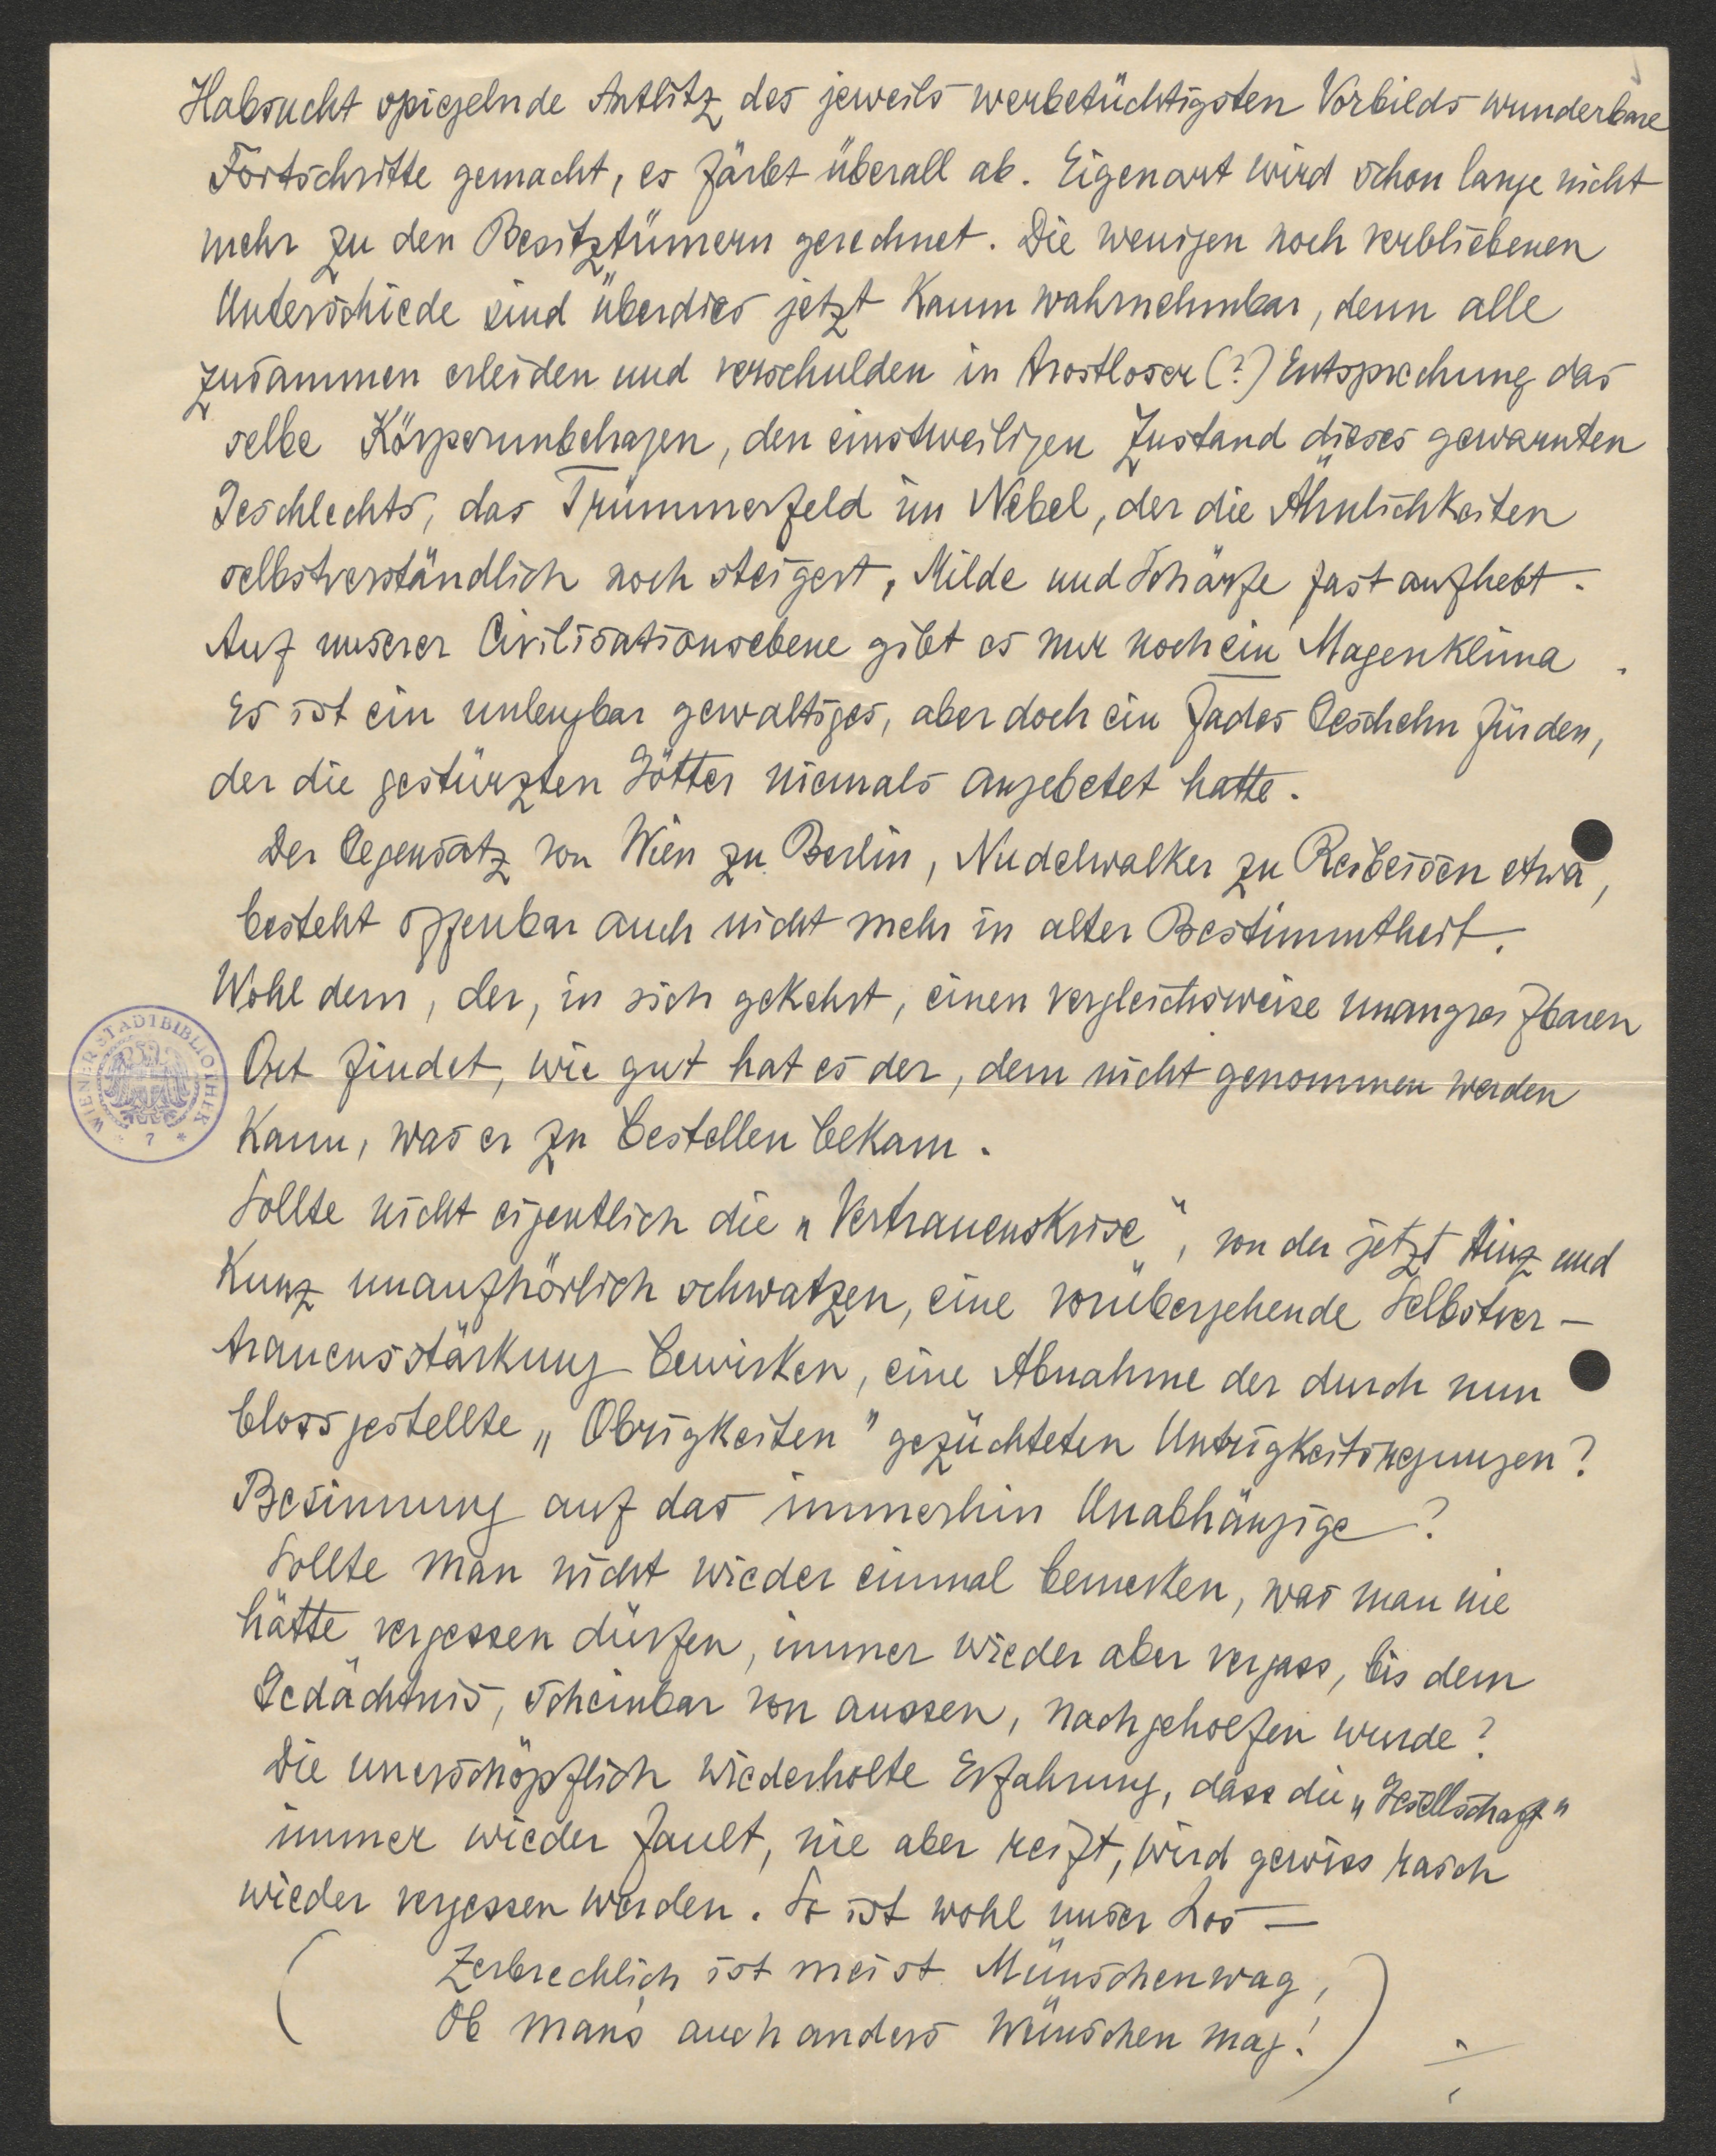 Habsucht spiegelnde Antlitz des jeweils werbetüchtigsten Vorbilds wunderbare
Fortschritte gemacht, es färbt überall ab. Eigenart wird schon lange nicht
mehr zu den Besitztümern gerechnet. Die wenigen noch verbliebenen
Unterschiede sind überdies jetzt kaum wahrnehmbar, denn alle
zusammen erleiden und verschulden in trostloser (?) Entsprechung das
selbe Körperunbehagen, den einstweiligen Zustand dieses gewarnten
Geschlechts, das Trümmerfeld im Nebel, der die Ähnlichkeiten
selbstverständlich noch steigert, Milde und Schärfe fast aufhebt.
Auf unserer Civilisationsebene gibt es nur noch ein Magenklima.
Es ist ein unleugbar gewaltiges, aber doch ein fades Geschehn für den,
der die gestürzten Götter niemals angebetet hatte.
Der Gegensatz von Wien zu Berlin, Nudelwalker zu Reibeisen etwa,
besteht offenbar auch nicht mehr in alter Bestimmtheit.
Wohl dem, der, in sich gekehrt, einen vergleichsweise unangreifbaren
Ort findet, wie gut hat es der, dem nicht genommen werden
kann, was er zu bestellen bekam.
Sollte nicht eigentlich die „Vertrauenskrise", von der jetzt Hinz und
Kunz unaufhörlich schwatzen, eine vorübergehende Selbstver-
trauensstärkung bewirken, eine Abnahme der durch nun
blossgestellte „Obrigkeiten" gezüchteten Untrigkeitsregungen?
Besinnung auf das immerhin Unabhängige?
Sollte man nicht wieder einmal bemerken, was man nie
hätte vergessen dürfen, immer wieder aber vergass, bis dem
Gedächtnis, scheinbar von aussen, nachgeholfen wurde?
Die unerschöpflich wiederholte Erfahrung, dass die „Gesellschaft"
immer wieder fault, nie aber reift, wird gewiss rasch
wieder vergessen werden. So ist wohl unser Los —
( Zerbrechlich ist meist Münschenwag,
Ob man's auch anders wünschen mag! )
÷
WIENER STADTBIBLIOTHEK
* 7 *